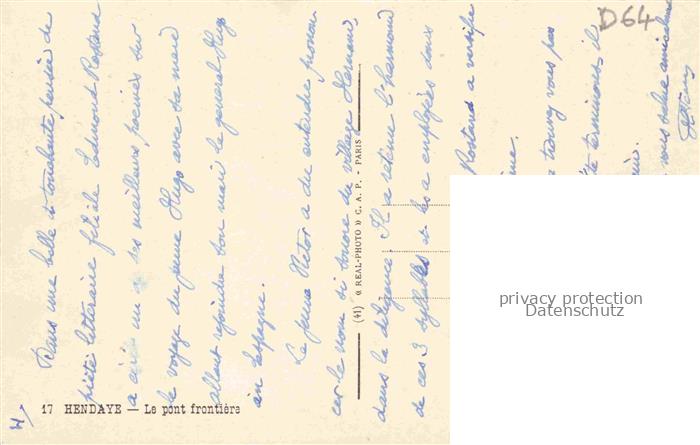 Dans une belle et touchante pensée de
piété littéraire filiale Edmond Rostand
a un de ses meilleurs poèmes sur
le voyage du jeune Hugo avec sa mère
allant rejoindre son mari le général Hugo
en Espagne.
Le jeune Victor a du entendre pronon
cer le nom si sonore du village Hernani,
dans la diligence. Il a retenu l'harmonie
de ces 3 syllabes et les a employées dans
Rostand a versifié
trouvez vous pas
terminons, il
vous
D64
17 HENDAYE — Le pont frontière
(41) « REAL-PHOTO » C. A. P. - PARIS
privacy protection
Datenschutz